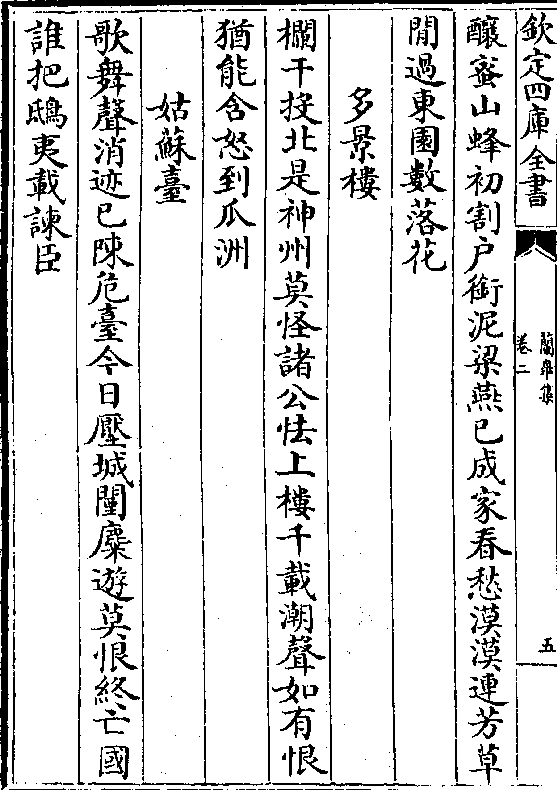 欽定四庫全書
蘭皋集
卷二
五
釀蜜山蜂初割户銜泥梁燕已成家春愁漠漠連芳草
閒過東園數落花
多景樓
欄干投北是神州莫怪諸公怯上樓千載潮聲如有恨
猶能含怒到瓜洲
姑蘇臺
歌舞聲消迹已陳危臺今日壓城闉麋遊莫恨終亡國
誰把鴟夷載諫臣